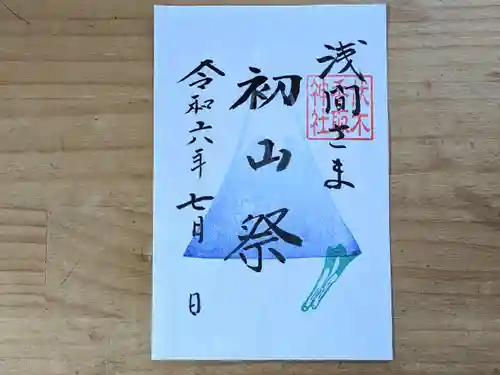 浅間さま
伏木香取神社
初山祭
令和六年七月 日